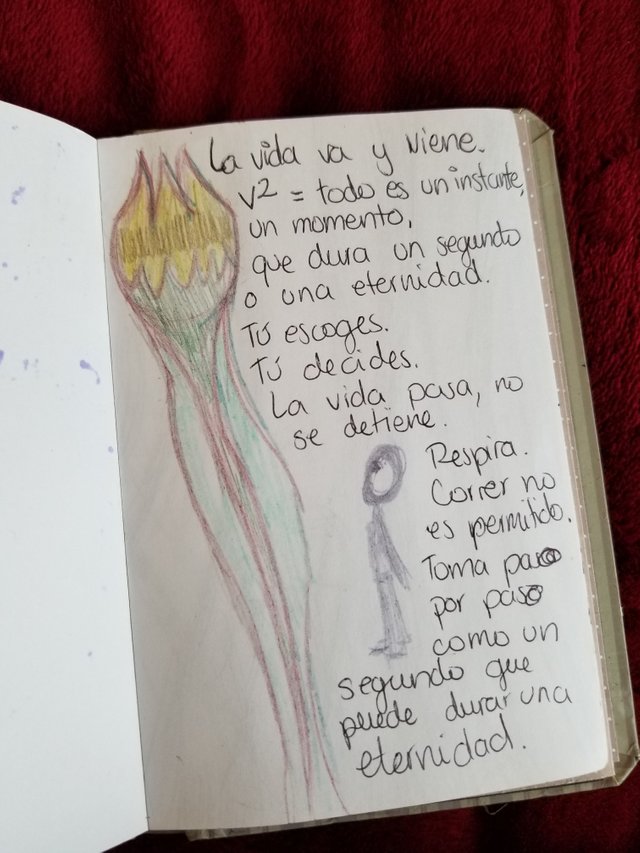 La vida va y viene.
v² = todo es un instante,
un momento,
que dura un segundo
o una eternidad.
Tú escoges.
Tú decides.
La vida pasa, no
se detiene.
Respira.
Correr no
es permitido.
Toma paso
por paso
como un
segundo que
puede durar una
eternidad.